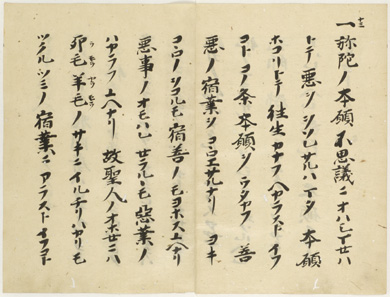 十三
一弥陀ノ本願不思議ニオハシマセハ
トテ悪ヲヲソレサルハマタ本願
ホコリトテ往生カナフヘカラストイフ
コトコノ条本願ヲウタカフ善
悪ノ宿業ヲコヽロエサルナリヨキ
コヽロノヲコルモ宿善ノモヨホスユヘナリ
悪事ノオモハレセラルヽモ悪業ノ
ハカラフユヘナリ故聖人ノオホセニハ
卯毛羊毛ノサキニイルチリハカリモ
ツクルツミノ宿業ニアラストイフコト